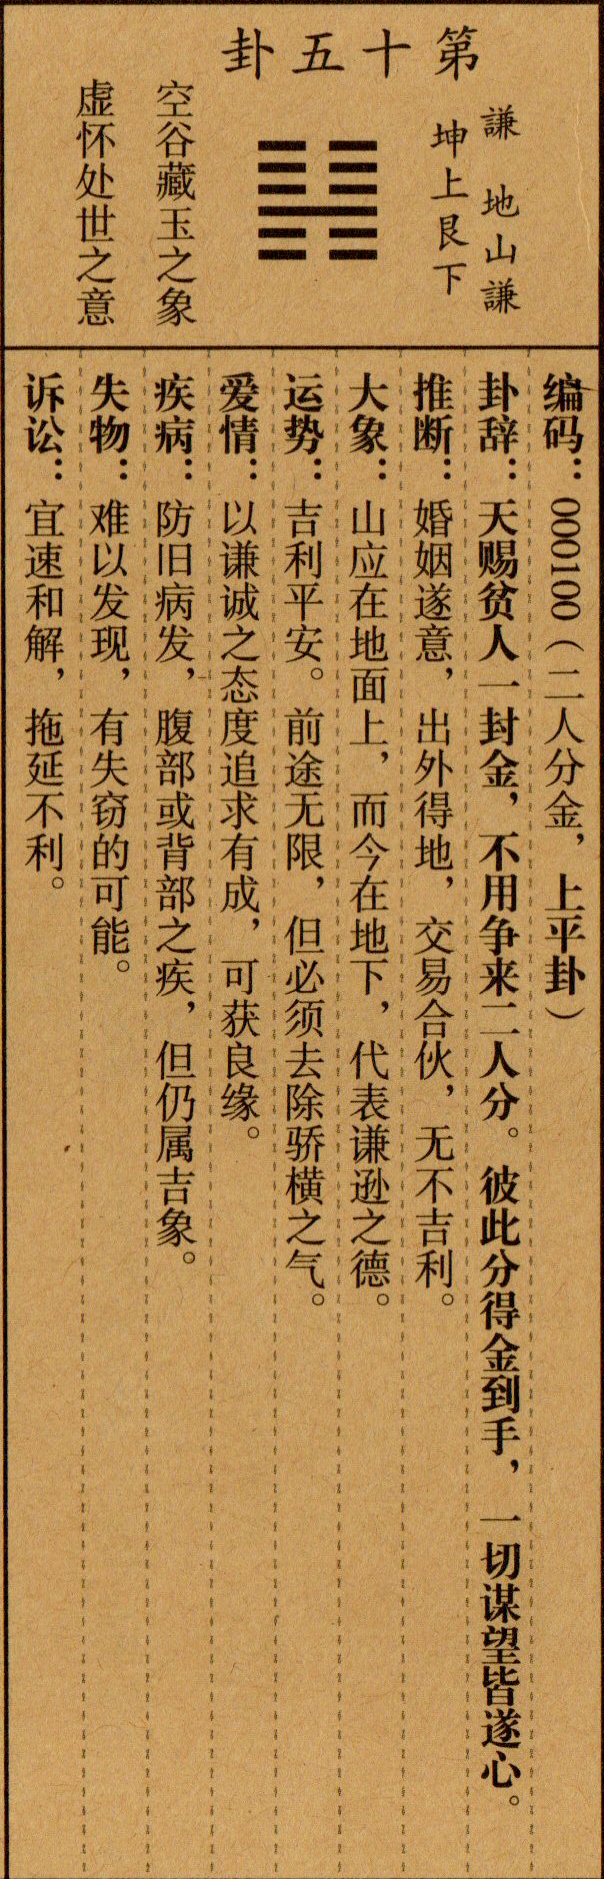 第十五卦
謙 地山謙
坤上艮下
空谷藏玉之象
虚怀处世之意
编码：000100（二人分金，上平卦）
卦辞：天赐贫人一封金，不用争来二人分。彼此分得金到手，一切谋望皆遂心。
推断：婚姻遂意，出外得地，交易合伙，无不吉利。
大象：山应在地面上，而今在地下，代表谦逊之德。
运势：吉利平安。前途无限，但必须去除骄横之气。
爱情：以谦诚之态度追求有成，可获良缘。
疾病：防旧病发，腹部或背部之疾，但仍属吉象。
失物：难以发现，有失窃的可能。
诉讼：宜速和解，拖延不利。